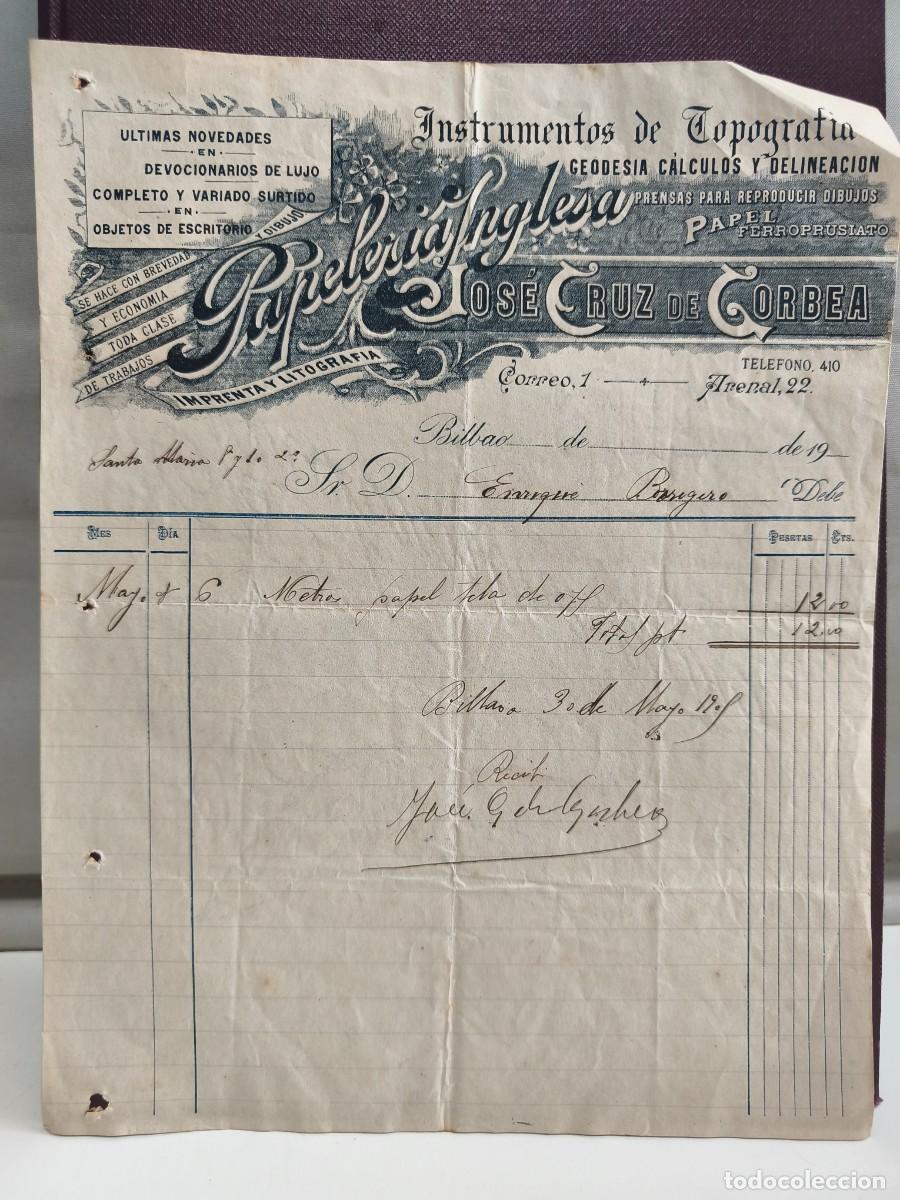 ULTIMAS NOVEDADES
EN
DEVOCIONARIOS DE LUJO
COMPLETO Y VARIADO SURTIDO
EN
OBJETOS DE ESCRITORIO Y DIBUJO
SE HACE CON BREVEDAD
Y ECONOMIA
TODA CLASE
DE TRABAJOS
Instrumentos de Topografia
GEODESIA CÁLCULOS Y DELINEACION
PRENSAS PARA REPRODUCIR DIBUJOS
PAPEL
FERROPRUSIATO
Papelería Inglesa
IMPRENTA Y LITOGRAFIA
JOSÉ CRUZ DE GORBEA
TELEFONO, 410
Correo, 1 Arenal, 22.
Bilbao de de 19
Santa Maria 8 y 10 2º
Sr. D. Enrique Debe
MES DIA PESETAS CTS.
Mayo 6 Metros papel tela de 12,00
Total pt 12,00
Bilbao 30 de Mayo 1905
Recibí
José C de Gorbea
todocoleccion